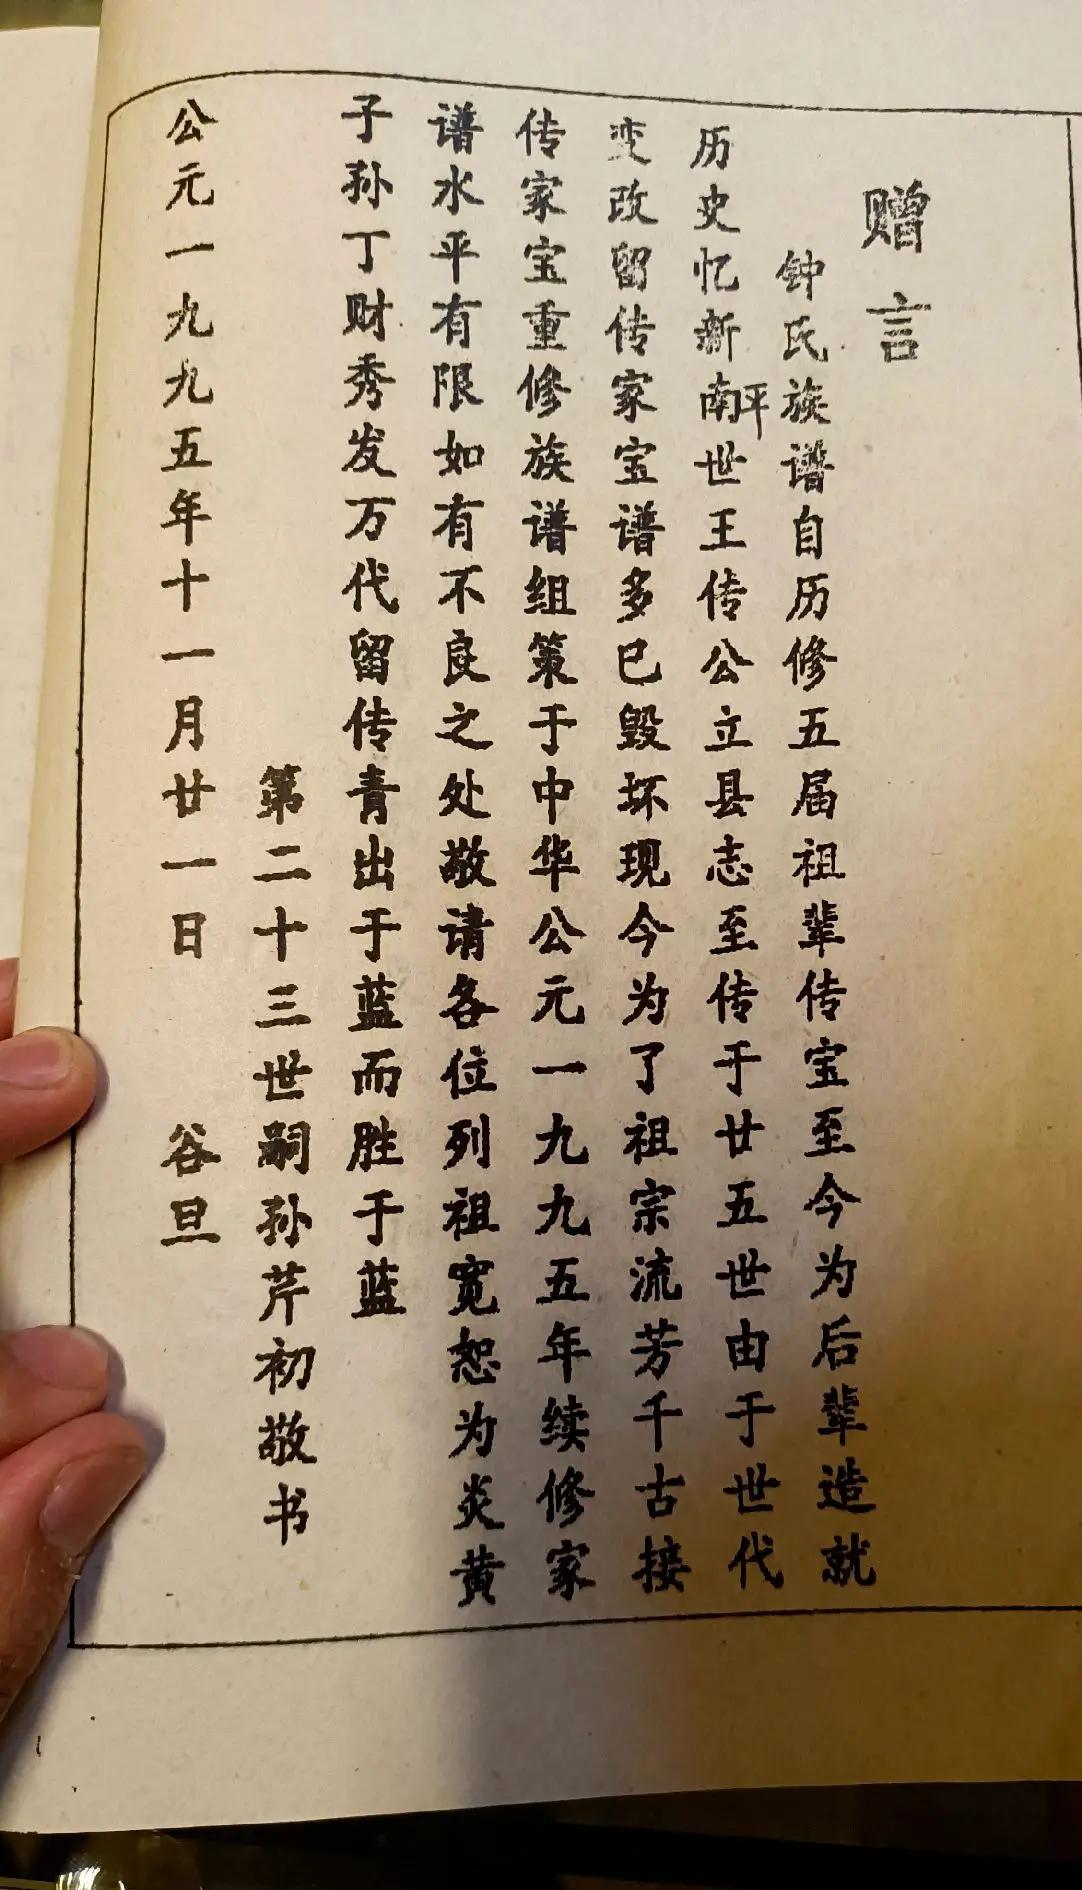 赠言
钟氏族谱自历修五届祖辈传宝至今为后辈造就
历史忆新南平世王传公立县志至传于廿五世由于世代
变改留传家宝谱多已毁坏现今为了祖宗流芳千古接
传家宝重修族谱组策于中华公元一九九五年续修家
谱水平有限如有不良之处敬请各位列祖宽恕为炎黄
子孙丁财秀发万代留传青出于蓝而胜于蓝
第二十三世嗣孙芹初敬书
公元一九九五年十一月廿一日 谷旦